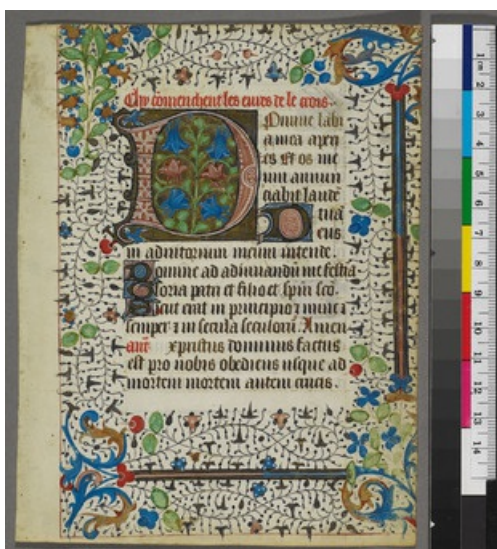 Chy cōmenchent les eures de le crois.
Domine labi
a mea aperi
es Et os me
um annun
ciabit laudē
tuā
Deus
in adiutorium meum intende.
Domine ad adiuuandū me festīa
Gloria patri et filio et spiri sco
Sicut erat in principio ⁊ nunc ⁊
semper ⁊ in secula seculorū. Amen
ant̄ xpristus dominus factus
est pro nobis obediens usque ad
mortem mortem autem crucis.
cm 1 2 3 4 5 6 7 8 9 10 11 12 13 14